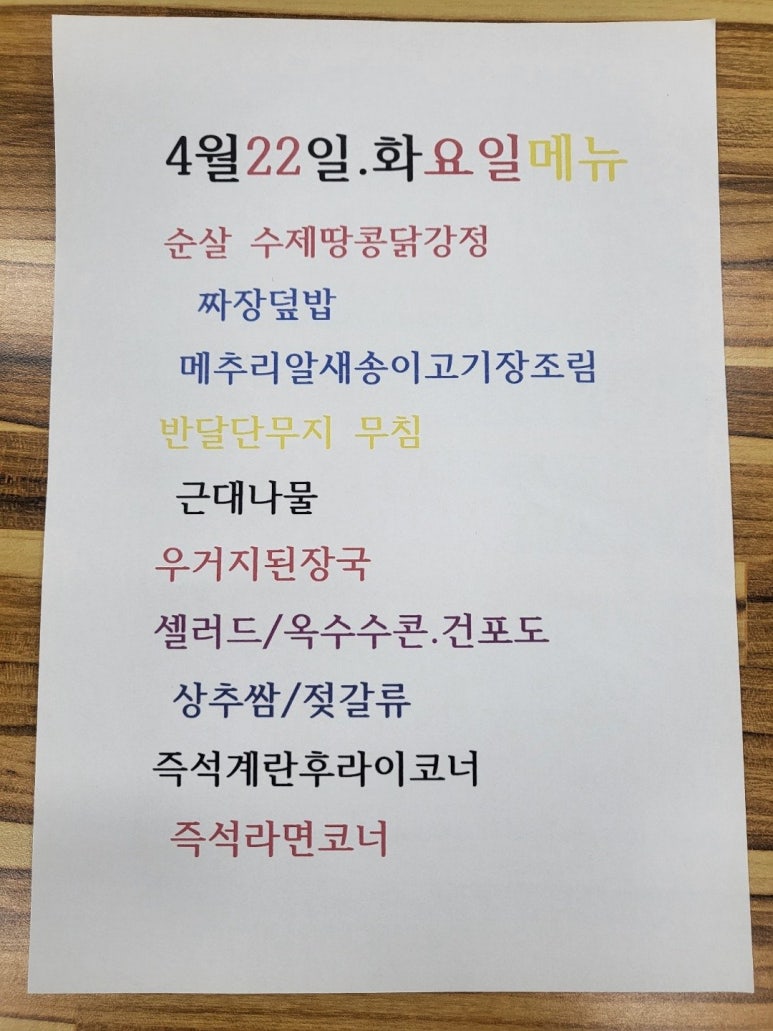 4월22일.화요일메뉴
순살 수제땅콩닭강정
짜장덮밥
메추리알새송이고기장조림
반달단무지 무침
근대나물
우거지된장국
셀러드/옥수수콘.건포도
상추쌈/젖갈류
즉석계란후라이코너
즉석라면코너